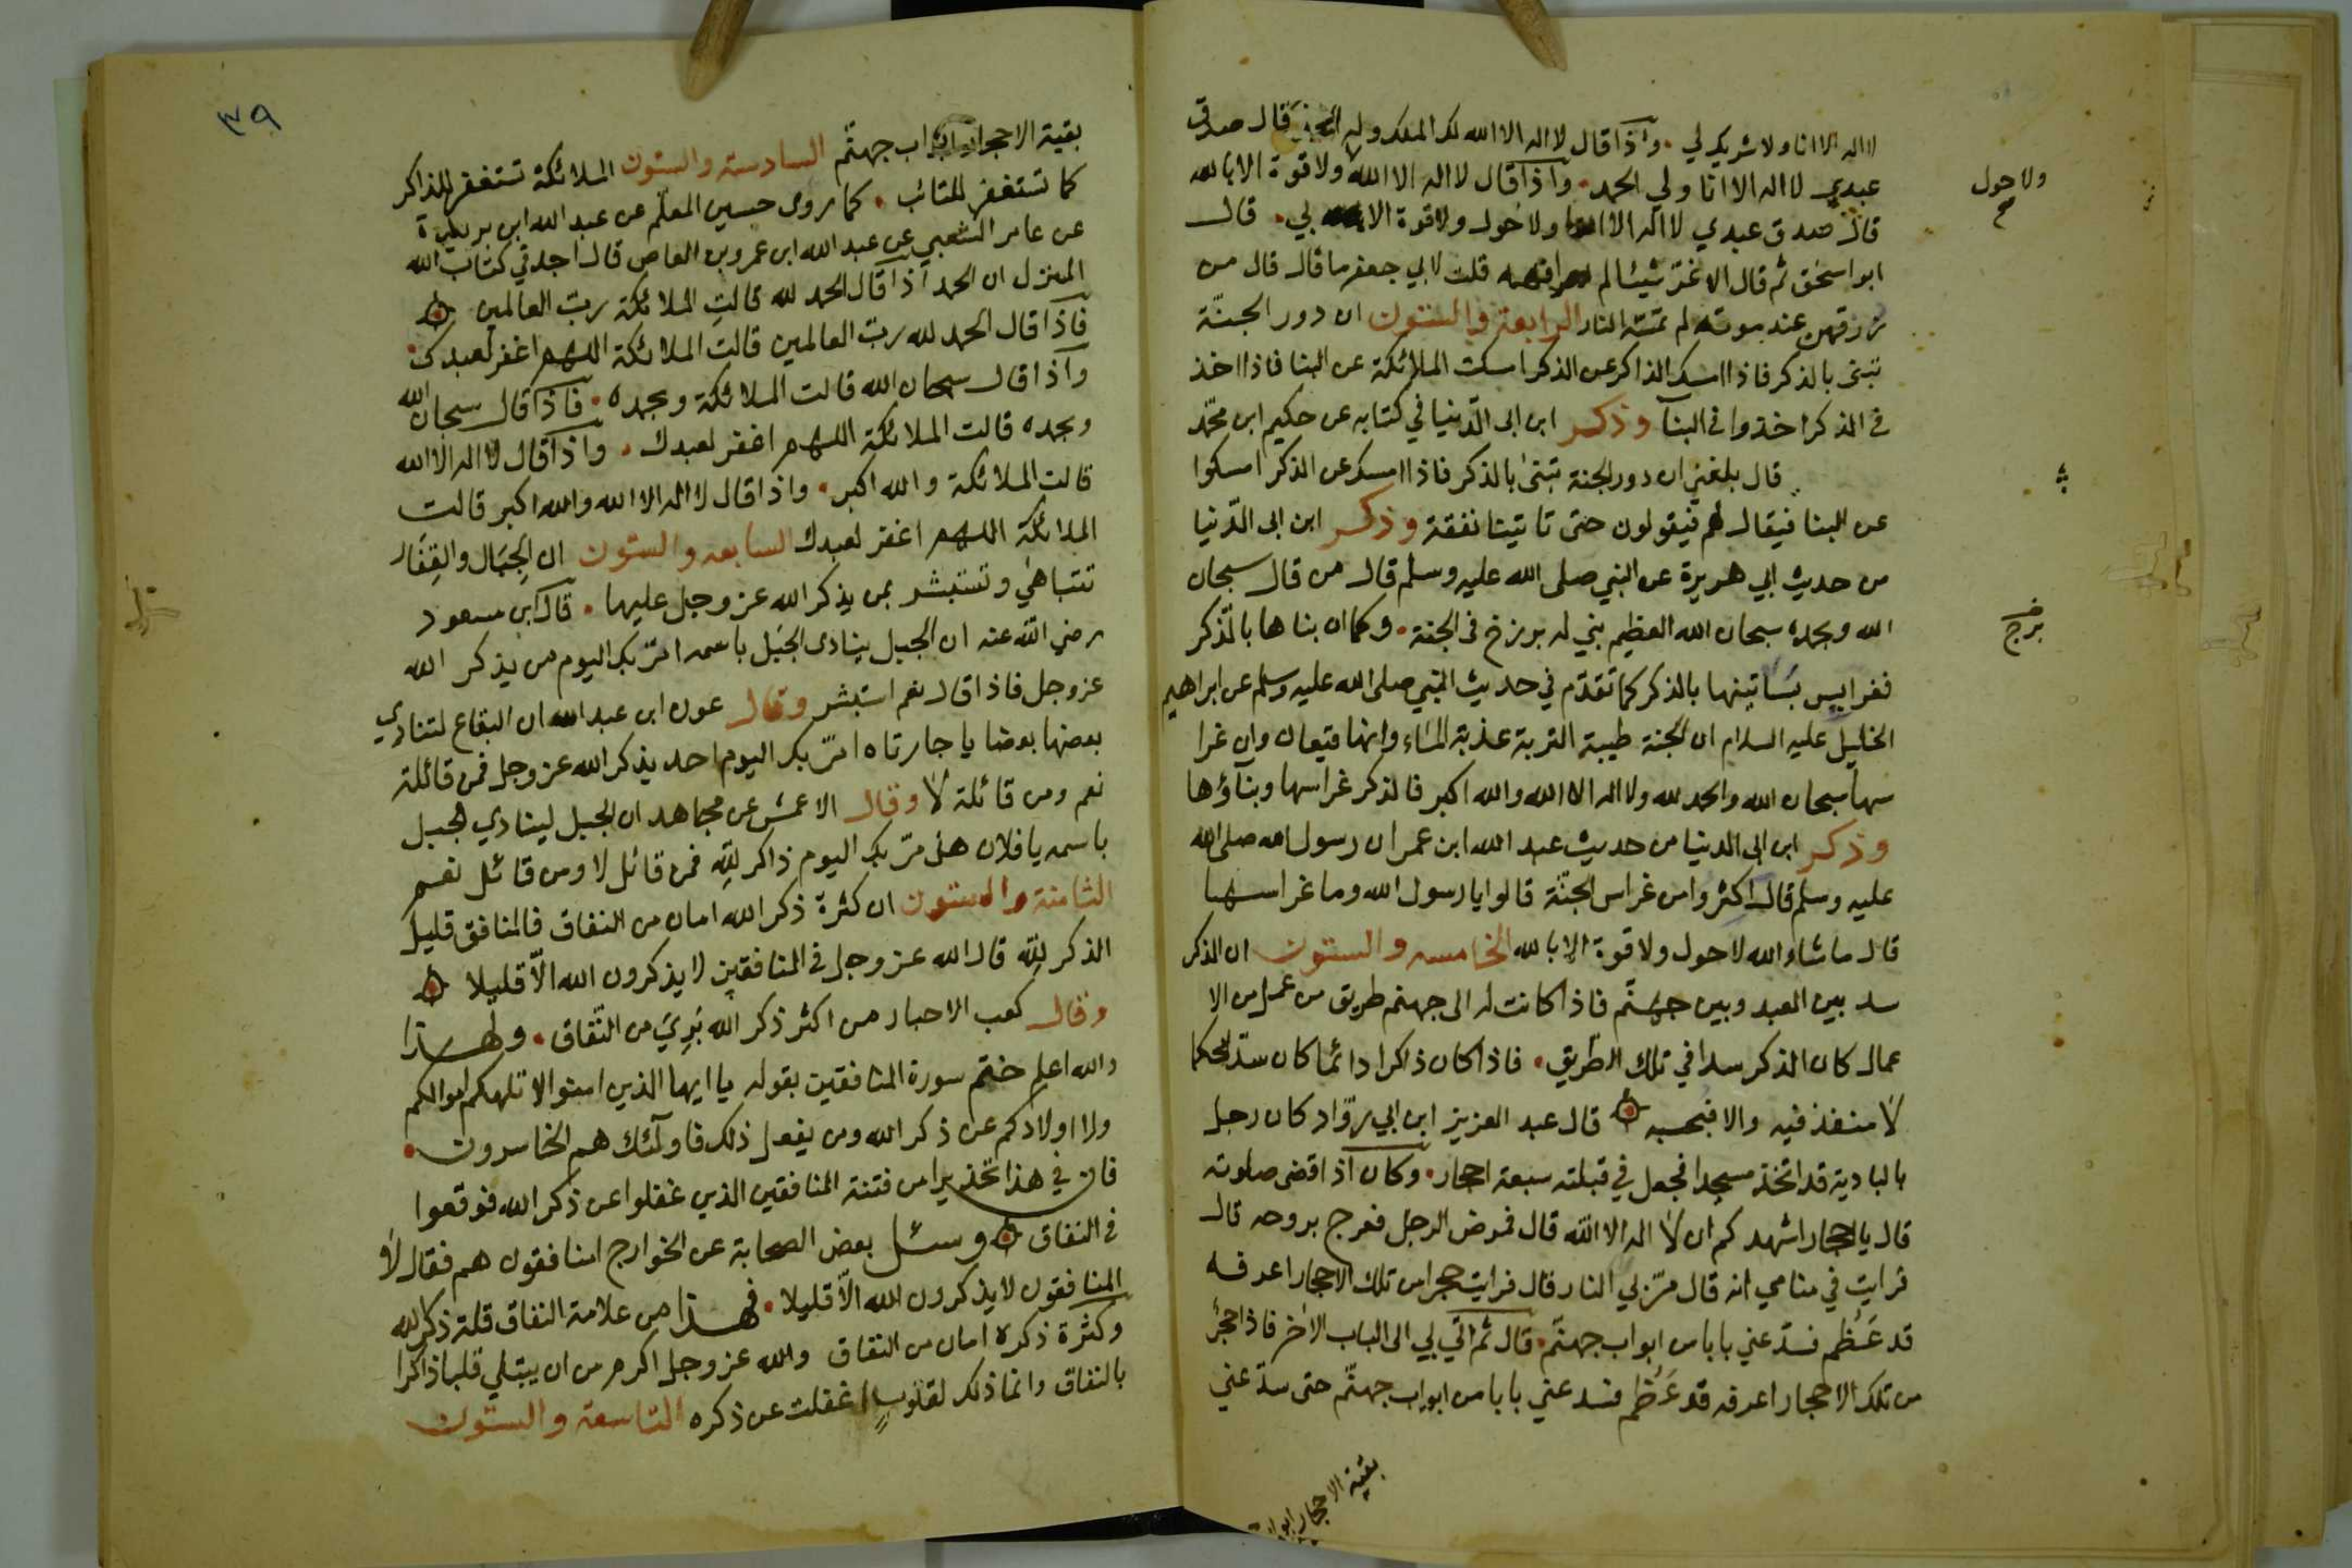 لا اله الا انا ولا شريك لي . واذا قال لا اله الا الله له الملك وله الحمد قال صدق
عبدي لا اله الا انا ولي الحمد . واذا قال لا اله الا الله ولا قوة الا بالله
ولا حول
قال صدق عبدي لا اله الا انا ولا حول ولا قوة الا بي . قال
ابو اسحق ثم قال الاغر شيئا لم افهمه قلت لابي جعفر ما قال قال من
رزقهن عند موته لم تمسه النار الرابعة والستون ان دور الجنة
تبنى بالذكر فاذا امسك الذاكر عن الذكر امسكت الملائكة عن البنا فاذا اخذ
في الذكر اخذوا في البنآ وذكر ابن ابي الدنيا في كتابه عن حكيم ابن محمد
قال بلغني ان دور الجنة تبنى بالذكر فاذا امسك عن الذكر امسكوا
عن البنا فيقال لهم فيقولون حتى تاتينا نفقة وذكر ابن ابي الدنيا
من حديث ابي هريرة عن النبي صلى الله عليه وسلم قال من قال سبحان
الله وبحمده سبحان الله العظيم بني له برزخ في الجنة . وكما ان بناها بالذكر
برج
فغراس بساتينها بالذكر كما تقدم في حديث النبي صلى الله عليه وسلم عن ابراهيم
الخليل عليه السلام ان الجنة طيبة التربة عذبة الماء وانها قيعان وان غرا
سها سبحان الله والحمد لله ولا اله الا الله والله اكبر فالذكر غراسها وبناؤها
وذكر ابن ابي الدنيا من حديث عبد الله ابن عمر ان رسول الله صلى الله
عليه وسلم قال اكثروا من غراس الجنة قالوا يا رسول الله وما غراسها
قال ما شاء الله لا حول ولا قوة الا بالله الخامسة والستون ان الذكر
سد بين العبد وبين جهنم فاذا كانت له الى جهنم طريق من عمل من الا
عمال كان الذكر سدا في تلك الطريق . فاذا كان ذاكرا دائما كان سدا محكما
لا منفذ فيه والا فبحسبه قال عبد العزيز ابن ابي رواد كان رجل
بالبادية قد اتخذ مسجدا فجعل في قبلته سبعة احجار . وكان اذا قضى صلوته
قال يا احجار اشهدكم ان لا اله الا الله قال فمرض الرجل فعرج بروحه قال
فرايت في منامي انه قال مر بي النار قال فرايت حجرا من تلك الاحجار اعرفه
قد عظم فسد عني بابا من ابواب جهنم . قال ثم اتي بي الى الباب الاخر فاذا حجر
من تلك الاحجار اعرفه قد عظم فسد عني بابا من ابواب جهنم حتى سد عني
بقية الاحجار ابواب
٣٩
بقية الاحجار ابواب جهنم السادسة والستون الملائكة تستغفر للذاكر
كما تستغفر للتائب . كما روى حسين المعلم عن عبد الله ابن بريدة
عن عامر الشعبي عن عبد الله ابن عمرو بن العاص قال اجد في كتاب الله
المنزل ان الحمد اذا قال الحمد لله قالت الملائكة رب العالمين
فاذا قال الحمد لله رب العالمين قالت الملائكة اللهم اغفر لعبدك .
واذا قال سبحان الله قالت الملائكة وبحمده . فاذا قال سبحان الله
وبحمده قالت الملائكة اللهم اغفر لعبدك . واذا قال لا اله الا الله
قالت الملائكة والله اكبر . واذا قال لا اله الا الله والله اكبر قالت
الملائكة اللهم اغفر لعبدك السابعة والستون ان الجبال والقفار
تتباهى وتستبشر بمن يذكر الله عز وجل عليها . قال ابن مسعود
رضي الله عنه ان الجبل ينادى الجبل باسمه امر بك اليوم من يذكر الله
عز وجل فاذا قال نعم استبشر وقال عون ابن عبد الله ان البقاع لتنادي
بعضها بعضا يا جارتاه امر بك اليوم احد يذكر الله عز وجل فمن قائلة
نعم ومن قائلة لا وقال الاعمش عن مجاهد ان الجبل لينادي الجبل
باسمه يا فلان هل مر بك اليوم ذاكر لله فمن قائل لا ومن قائل نعم
الثامنة والستون ان كثرة ذكر الله امان من النفاق فالمنافق قليل
الذكر لله قال الله عز وجل في المنافقين لا يذكرون الله الا قليلا
وقال كعب الاحبار من اكثر ذكر الله بري من النفاق . ولهذا
والله اعلم ختم سورة المنافقين بقوله يا ايها الذين امنوا لا تلهكم اموالكم
ولا اولادكم عن ذكر الله ومن يفعل ذلك فاولئك هم الخاسرون .
فان في هذا تحذيرا من فتنة المنافقين الذين غفلوا عن ذكر الله فوقعوا
في النفاق وسئل بعض الصحابة عن الخوارج امنافقون هم فقال لا
المنافقون لا يذكرون الله الا قليلا . فهذا من علامة النفاق قلة ذكر الله
وكثرة ذكره امان من النفاق والله عز وجل اكرم من ان يبتلي قلبا ذاكرا
بالنفاق وانما ذلك لقلوب غفلت عن ذكره التاسعة والستون